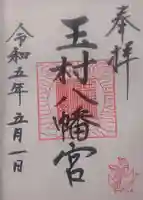 奉拝
玉村八幡宮
令和五年五月一日